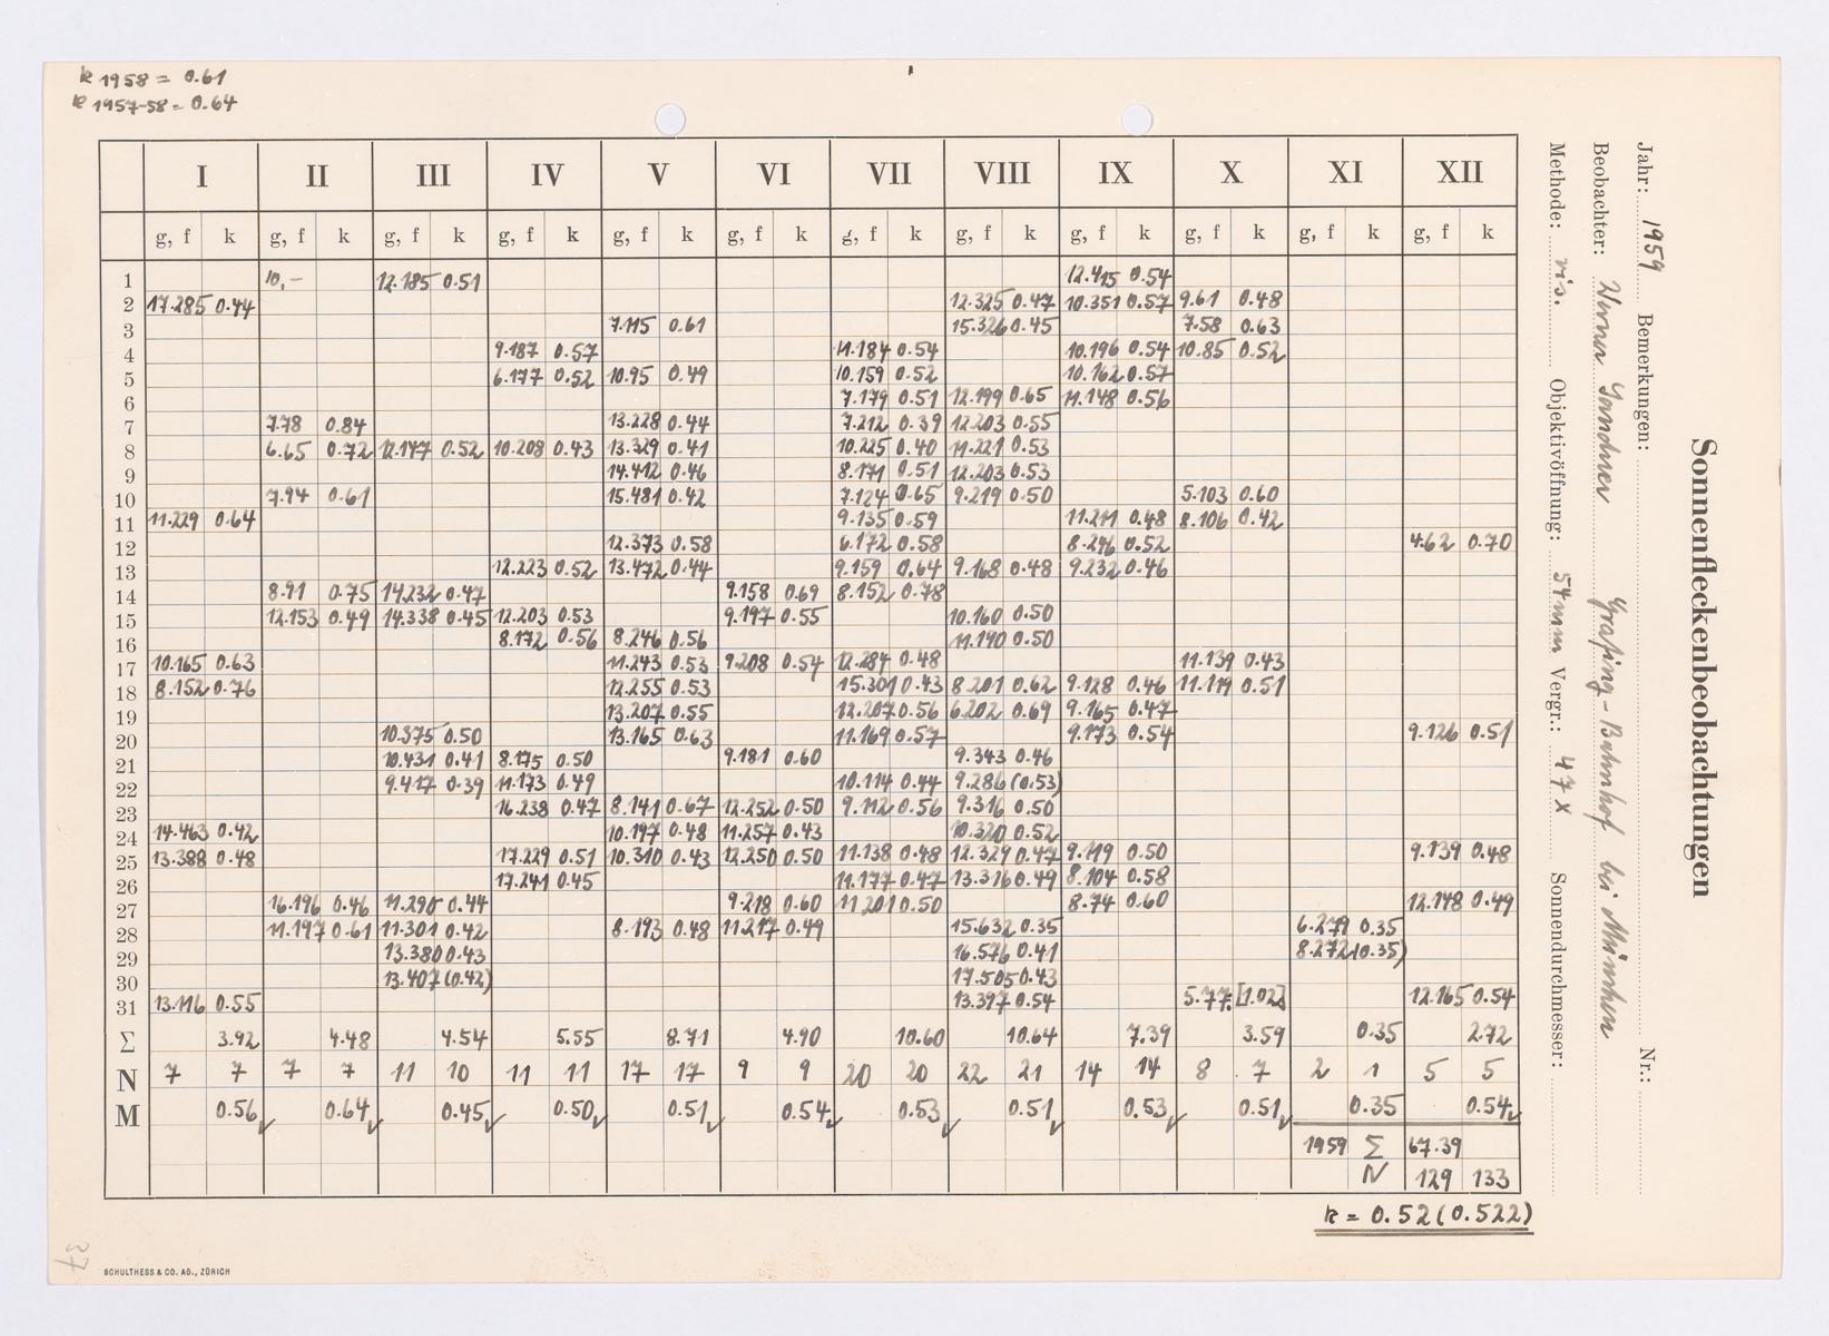 k 1958 = 0.61
k 1957-58 = 0.64
Sonnenfleckenbeobachtungen
Jahr: 1959 Bemerkungen: Nr.:
Beobachter: Werner Sandner Grafing-Bahnhof bei München
Methode: vis. Objektivöffnung: 54mm Vergr.: 47 x Sonnendurchmesser:
I II III IV V VI VII VIII IX X XI XII
g, f k g, f k g, f k g, f k g, f k g, f k g, f k g, f k g, f k g, f k g, f k g, f k
1 10,- 12.185 0.51 12.415 0.54
2 17.285 0.44 12.325 0.47 10.351 0.57 9.61 0.48
3 7.115 0.61 15.326 0.45 7.58 0.63
4 9.187 0.57 11.184 0.54 10.196 0.54 10.85 0.52
5 6.177 0.52 10.95 0.49 10.159 0.52 10.162 0.57
6 7.179 0.51 12.199 0.65 11.148 0.56
7 7.78 0.84 13.228 0.44 7.212 0.39 12.203 0.55
8 6.65 0.72 12.147 0.52 10.208 0.43 13.329 0.41 10.225 0.40 11.221 0.53
9 14.412 0.46 8.171 0.51 12.203 0.53
10 7.94 0.61 15.481 0.42 7.124 0.65 9.219 0.50 5.103 0.60
11 11.229 0.64 9.135 0.59 11.211 0.48 8.106 0.42
12 12.373 0.58 6.172 0.58 8.246 0.52 4.62 0.70
13 12.223 0.52 13.472 0.44 9.159 0.64 9.168 0.48 9.232 0.46
14 8.91 0.75 14.232 0.47 9.158 0.69 8.152 0.78
15 12.153 0.49 14.338 0.45 12.203 0.53 9.197 0.55 10.160 0.50
16 8.172 0.56 8.246 0.56 11.190 0.50
17 10.165 0.63 11.243 0.53 9.208 0.54 12.284 0.48 11.139 0.43
18 8.152 0.76 12.255 0.53 15.301 0.43 8.201 0.62 9.128 0.46 11.119 0.51
19 13.207 0.55 12.207 0.56 6.202 0.69 9.165 0.47
20 10.375 0.50 13.165 0.63 11.169 0.57 9.173 0.54 9.126 0.51
21 10.431 0.41 8.175 0.50 9.181 0.60 9.343 0.46
22 9.417 0.39 11.173 0.49 10.114 0.44 9.286 (0.53)
23 16.238 0.47 8.141 0.67 12.252 0.50 9.112 0.56 9.316 0.50
24 14.463 0.42 10.197 0.48 11.257 0.43 10.320 0.52
25 13.388 0.48 17.229 0.51 10.310 0.43 12.250 0.50 11.138 0.48 12.329 0.47 9.119 0.50 9.139 0.48
26 17.241 0.45 11.177 0.47 13.316 0.49 8.104 0.58
27 16.196 0.46 11.290 0.44 9.218 0.60 11.201 0.50 8.74 0.60 12.148 0.49
28 11.197 0.61 11.301 0.42 8.193 0.48 11.217 0.49 15.632 0.35 6.279 0.35
29 13.380 0.43 16.576 0.41 8.272 (0.35)
30 13.407 (0.42) 17.505 0.43
31 13.116 0.55 13.397 0.54 5.77: [1.02] 12.165 0.54
Σ 3.92 4.48 4.54 5.55 8.71 4.90 10.60 10.64 7.39 3.59 0.35 2.72
N 7 7 7 7 11 10 11 11 17 17 9 9 20 20 22 21 14 14 8 7 2 1 5 5
M 0.56 0.64 0.45 0.50 0.51 0.54 0.53 0.51 0.53 0.51 0.35 0.54
1959 Σ 67.39
N 129 133
k = 0.52 (0.522)
37
SCHULTHESS & CO. AG., ZÜRICH